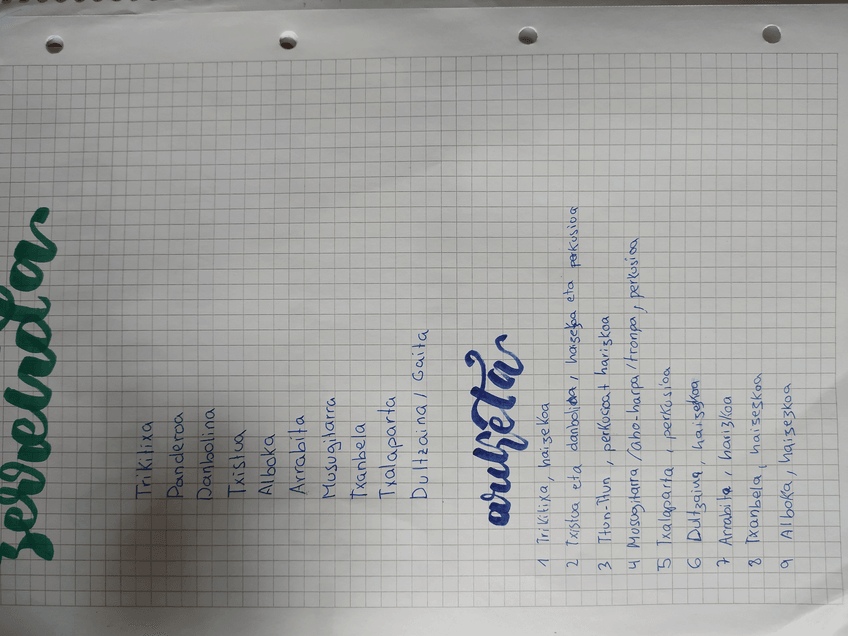 zerrenda
Trikitixa
Panderoa
Danbolina
Txistua
Alboka
Arrabita
Musugitarra
Txanbela
Txalaparta
Dultzaina/Gaita
aurketa
1 Trikitixa, haizekoa
2 Txistua eta danbolina, haizekoa eta perkusioa
3 Ttun-Ttun, perkusoat harizkoa
4 Mosugitarra/aho-harpa/tronpa, perkusioa
5 Txalaparta, perkusioa
6 Dultzaina, haizezkoa
7 Arrabita, harizkoa
8 Txanbela, haizezkoa
9 Alboka, haizezkoa